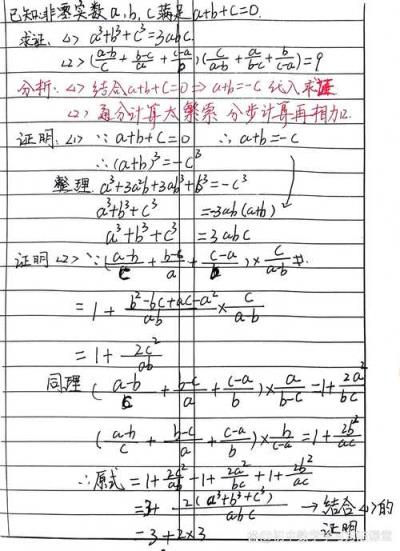 已知非零实数a,b,c满足a+b+c=0.
求证:<1> a³+b³+c³=3abc
<2> (a-b/c + b-c/a + c-a/b)(c/a-b + a/b-c + b/c-a)=9
分析:<1> 结合a+b+c=0 => a+b=-c 代入求证
<2> 通分计算太繁索 分步计算再相加.
证明:<1> ∵ a+b+c=0 ∴ a+b=-c
∴ (a+b)³=-c³
整理 a³+3a²b+3ab²+b³=-c³
a³+b³+c³ =-3ab(a+b)
a³+b³+c³ =3abc
证明<2> ∵ (a-b/c + b-c/a + c-a/b)× c/a-b
=1+ b²-bc+ac-a²/ab × c/a-b
=1+ 2c²/ab
同理 (a-b/c + b-c/a + c-a/b)× a/b-c =1+ 2a²/bc
(a-b/c + b-c/a + c-a/b)× b/c-a =1+ 2b²/ac
∴原式=1+ 2c²/ab +1+ 2a²/bc +1+ 2b²/ac
=3+ 2(a³+b³+c³)/abc → 结合<1>的
证明
=3+2×3